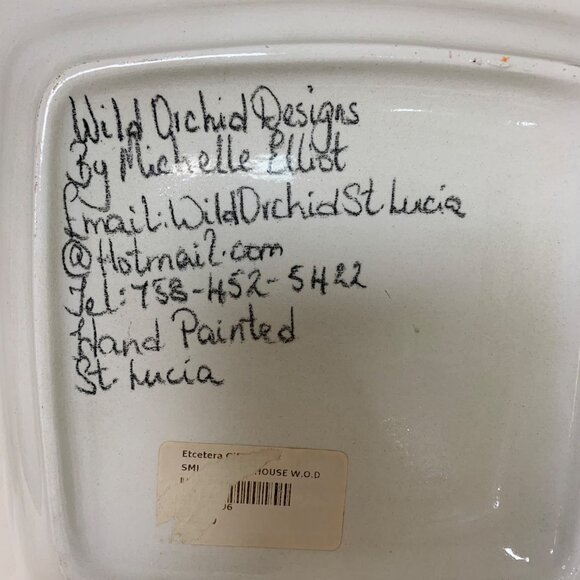 Wild Orchid Designs
By Michelle Elliot
Email: WildOrchidStLucia
@Hotmail.com
Tel: 758-452-5422
Hand Painted
St. Lucia
Etcetera
HOUSE W.O.D